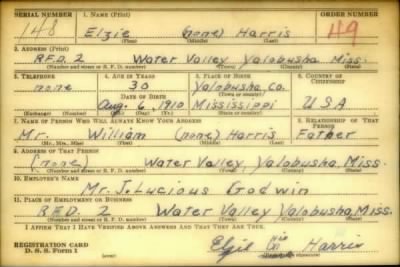 SERIAL NUMBER 1. NAME (Print) ORDER NUMBER
148 Elzie (none) Harris 49
(First) (Middle) (Last)
2. ADDRESS (Print)
R.F.D. 2 Water Valley Yalobusha Miss.
(Number and street or R. F. D. number) (Town) (County) (State)
3. TELEPHONE 4. AGE IN YEARS 5. PLACE OF BIRTH 6. COUNTRY OF CITIZENSHIP
none 30 Yalobusha Co.
(Town or county)
DATE OF BIRTH
Aug. 6, 1910 Mississippi U S A
(Exchange) (Number) (Mo.) (Day) (Yr.) (State or country)
7. NAME OF PERSON WHO WILL ALWAYS KNOW YOUR ADDRESS 8. RELATIONSHIP OF THAT PERSON
Mr. William (none) Harris Father
(Mr., Mrs., Miss) (First) (Middle) (Last)
9. ADDRESS OF THAT PERSON
(none) Water Valley, Yalobusha, Miss.
(Number and street or R. F. D. number) (Town) (County) (State)
10. EMPLOYER'S NAME
Mr. J. Lucious Godwin
11. PLACE OF EMPLOYMENT OR BUSINESS
R.F.D. 2 Water Valley Yalobusha, Miss.
(Number and street or R. F. D. number) (Town) (County) (State)
I AFFIRM THAT I HAVE VERIFIED ABOVE ANSWERS AND THAT THEY ARE TRUE.
REGISTRATION CARD
D. S. S. Form 1 Harris